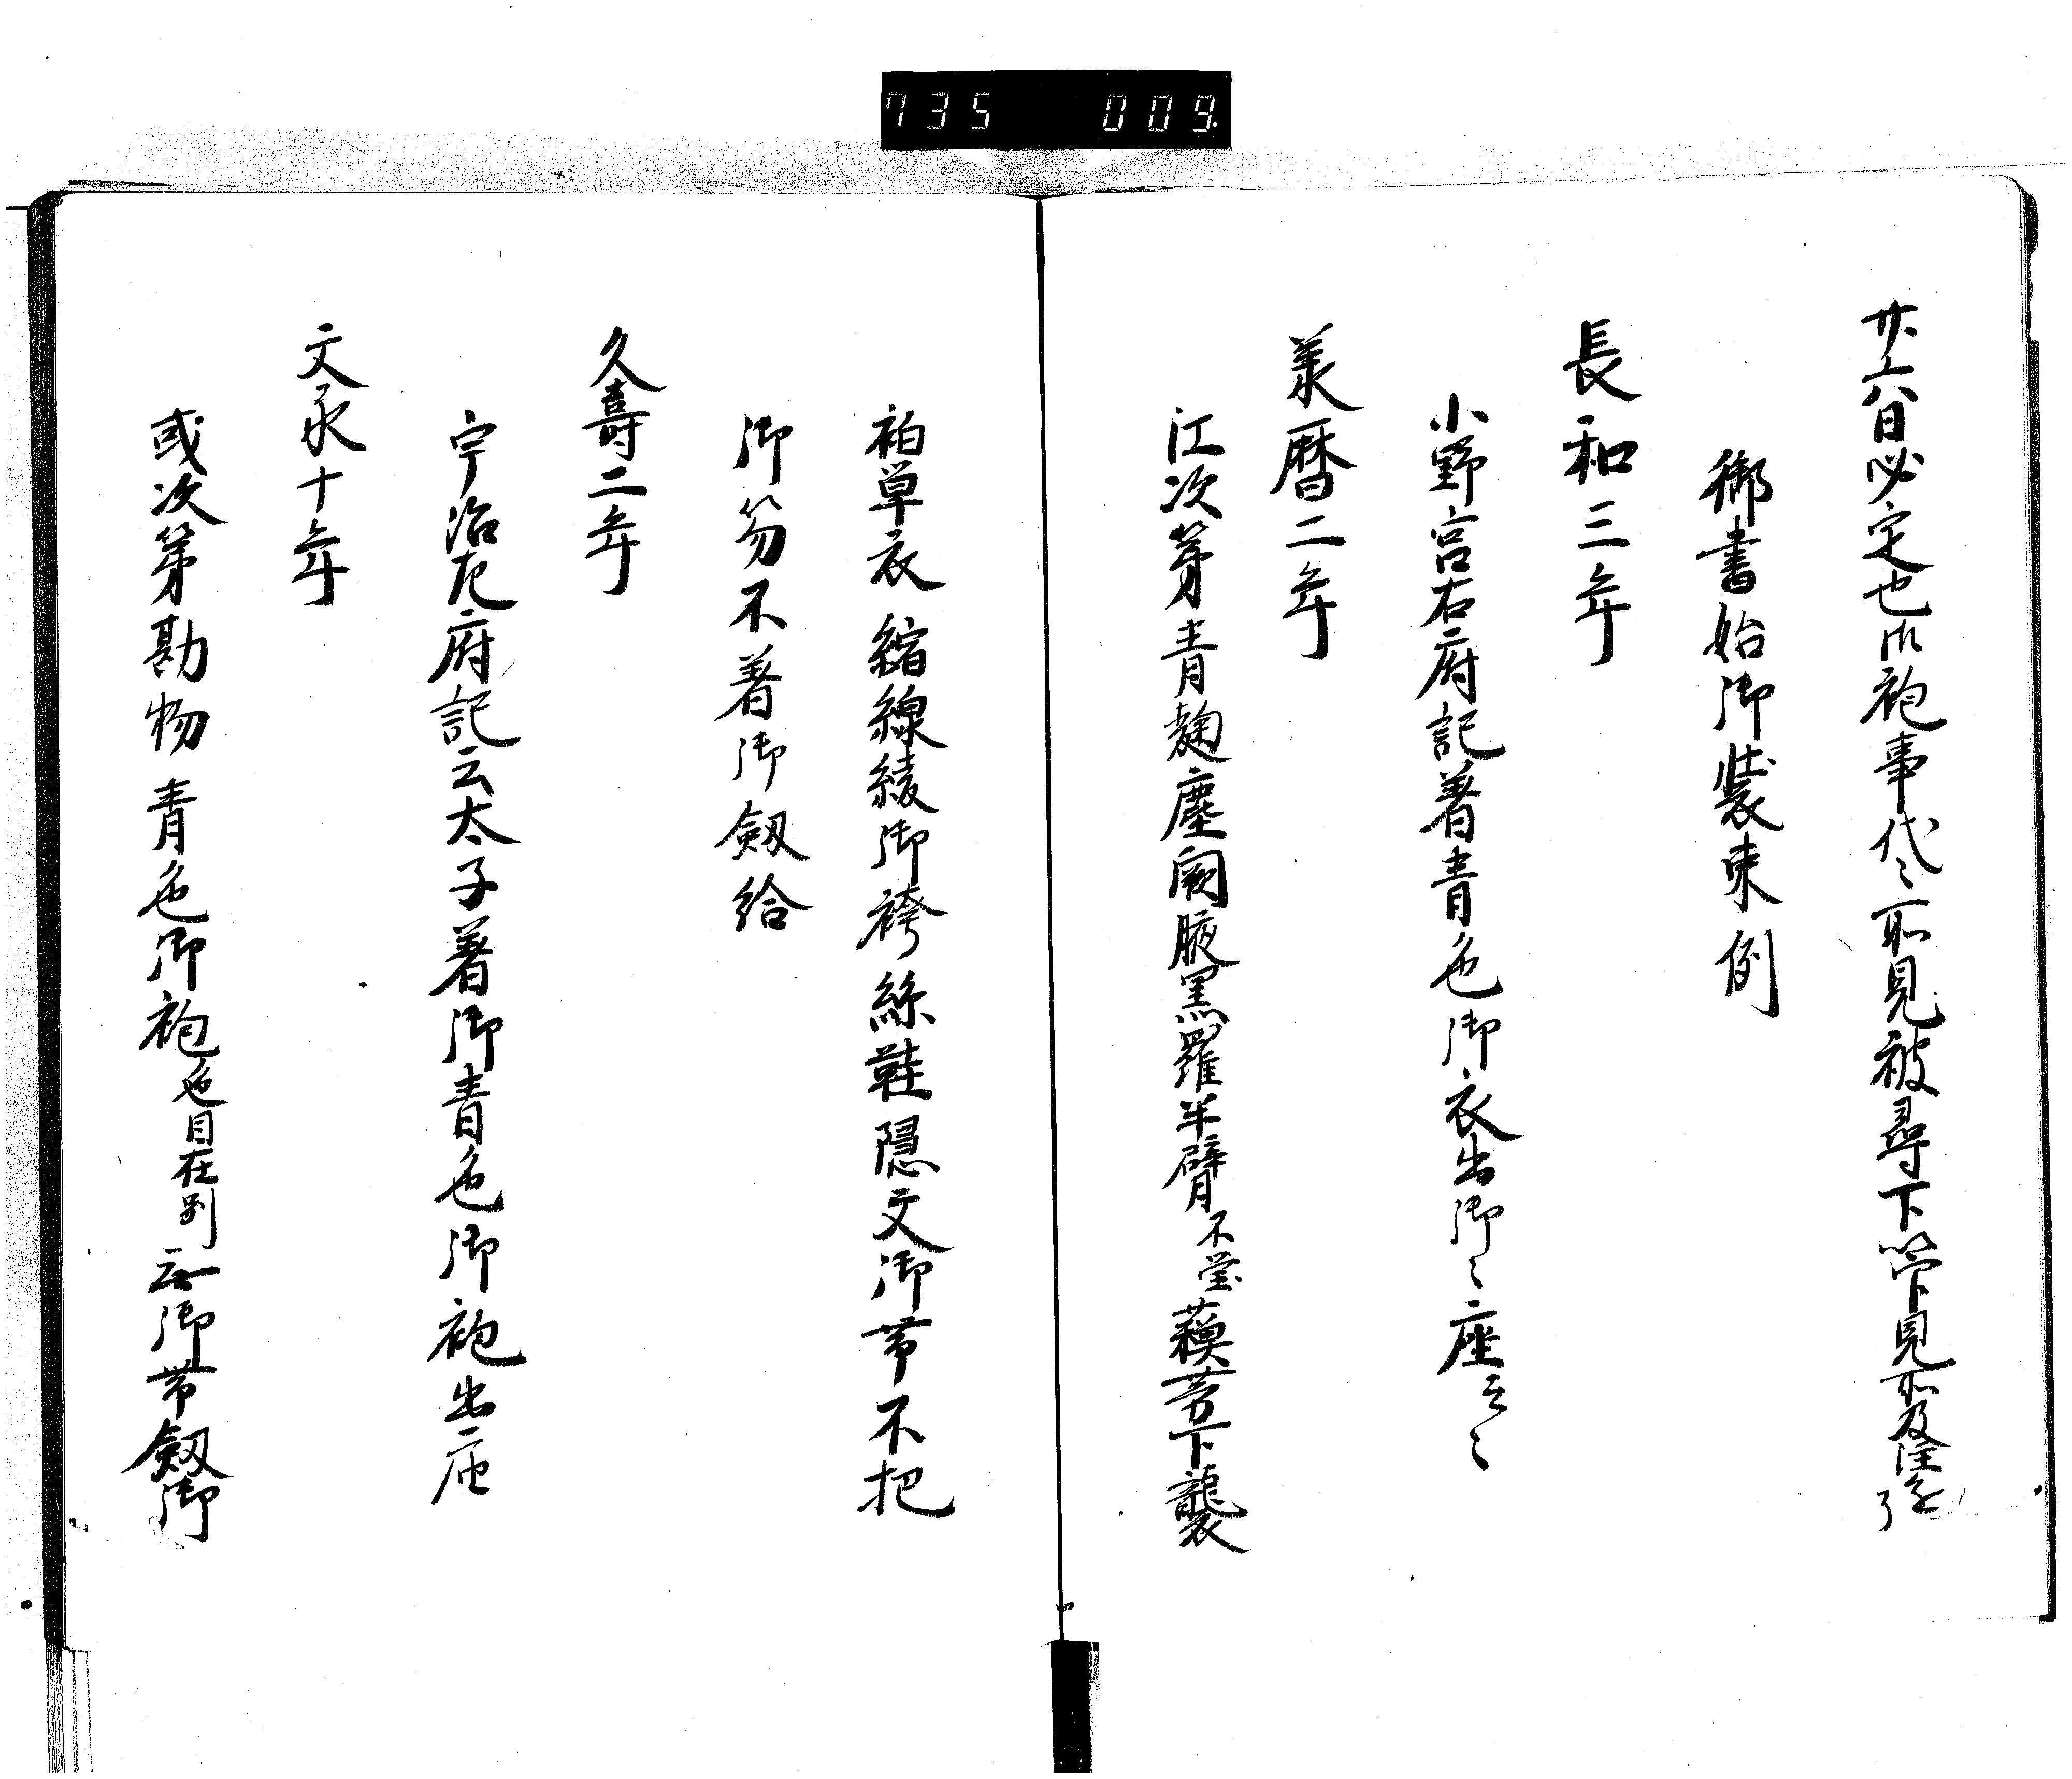 735 009.
廿六日必定也御袍事代々所見被尋下管見所及注進了
御書始御裝束例
長和三年
小野宮右府記著青色御衣出御々座云々
承暦二年
江次第青麹塵闕腋黒羅半臂不瑩蘇芳下襲
袙単衣縮線綾御袴絲鞋隠文御帯不把
御笏不著御劔給
久壽二年
宇治左府記云太子著御青色御袍出座
文永十年
或次第勘物青色御袍色目在別云御帯劔御